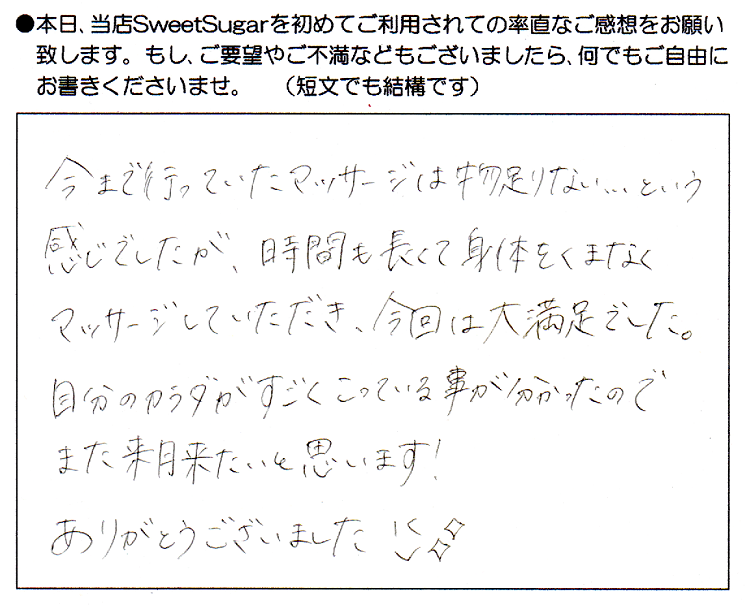 ●本日、当店SweetSugarを初めてご利用されての率直なご感想をお願い
致します。もし、ご要望やご不満などもございましたら、何でもご自由に
お書きくださいませ。　（短文でも結構です）
今まで行っていたマッサージは物足りない…という
感じでしたが、時間も長くて身体をくまなく
マッサージしていただき、今回は大満足でした。
自分のカラダがすごくこっている事が分かったので
また来月来たいと思います！
ありがとうございました